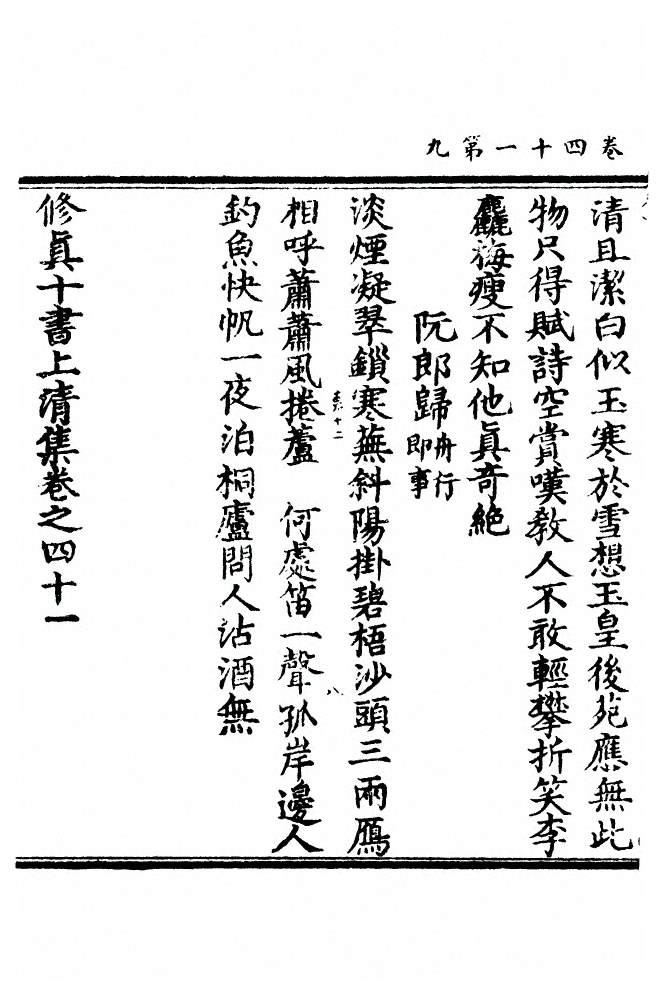 卷四十一第九
清且潔白似玉寒於雪想玉皇後苑應無此
物只得賦詩空賞嘆教人不敢輕攀折笑李
麤梅瘦不知他眞奇絶
阮郎歸 舟行即事
淡煙凝翠鎖寒蕪斜陽掛碧梧沙頭三兩鴈
相呼蕭蕭風捲蘆 何處笛一聲孤岸邊人
釣魚快帆一夜泊桐廬問人沽酒無
修眞十書上清集卷之四十一